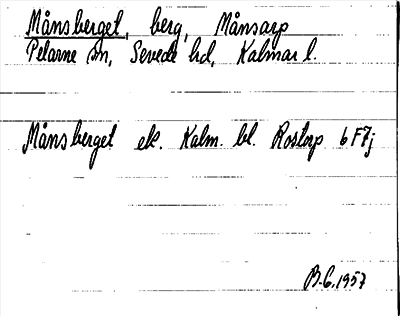 Månsberget, berg, Månsarp
Pelarne sn, Sevede hd, Kalmar l.
Månsberget ek. Kalm. bl. Rostorp 6 F7j
B.G. 1957